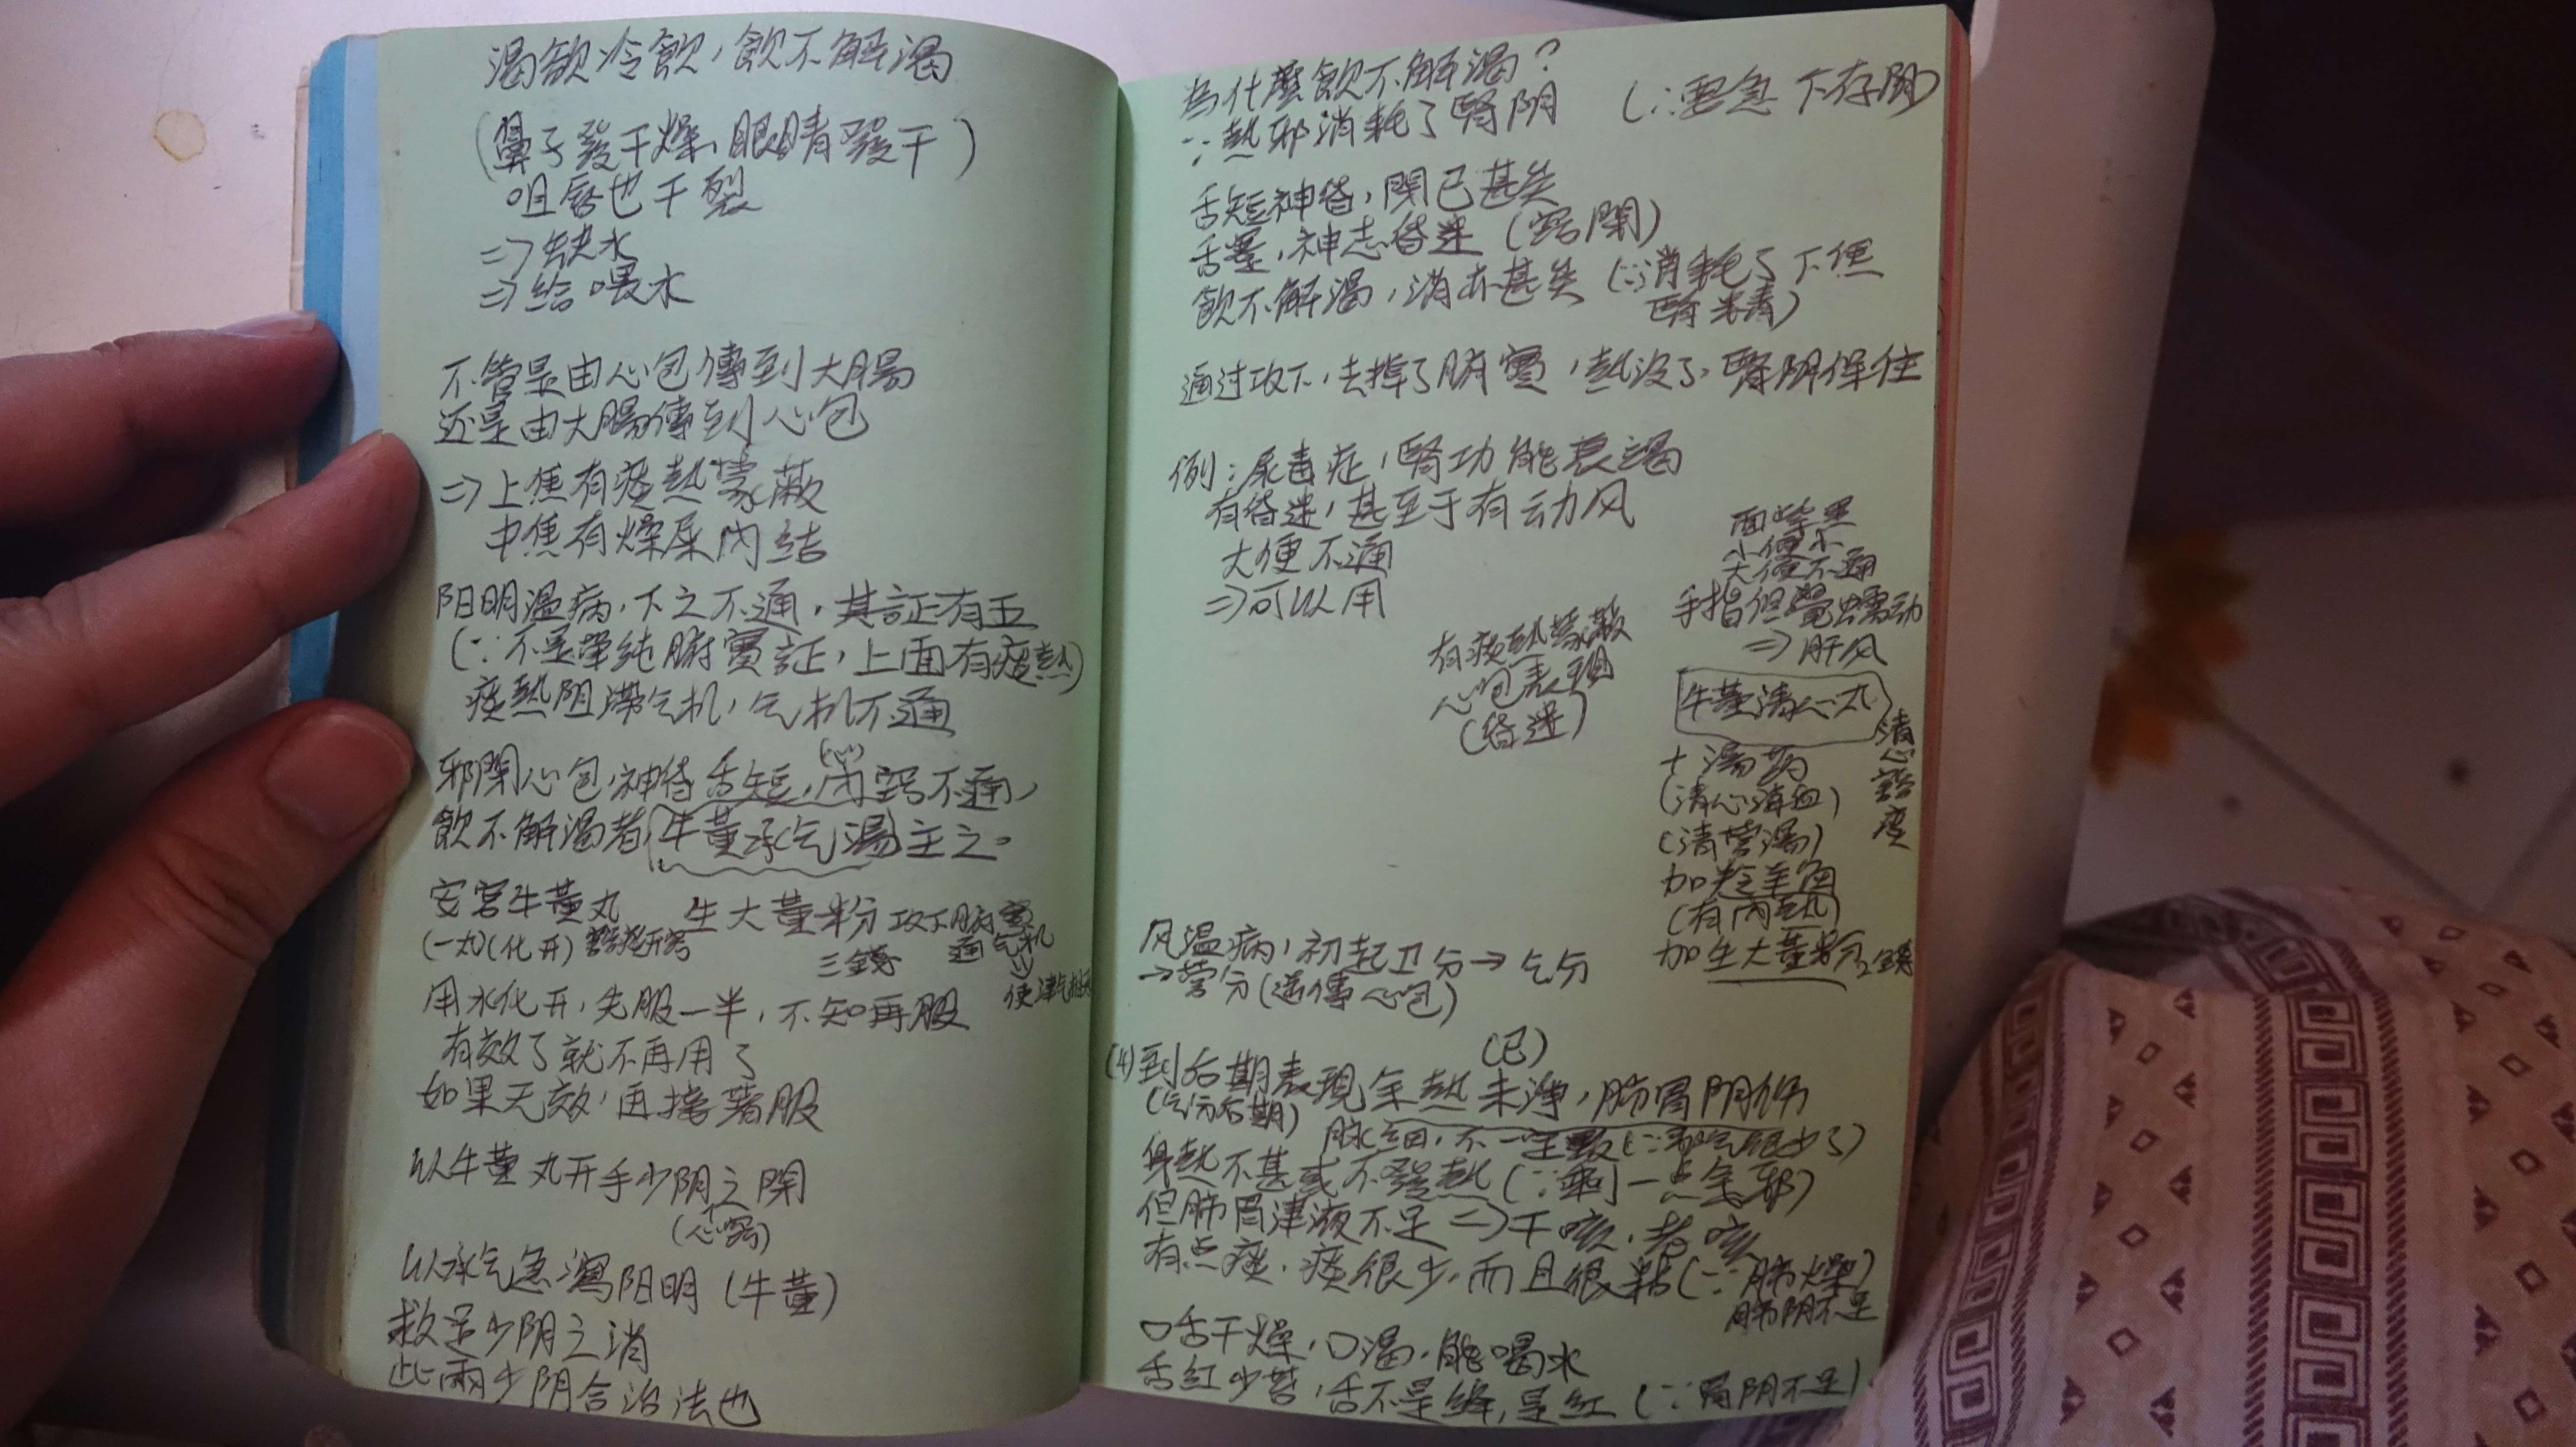 渴欲冷飲，飲不解渴
(鼻子發干燥、眼睛發干)
咀唇也干裂
=> 缺水
=> 給喂水
不管是由心包傳到大腸
还是由大腸傳到心包
=> 上焦有痰熱蒙蔽
中焦有燥屎內結
阳明溫病，下之不通，其証有五
(∵不是單純腑實証，上面有痰熱)
痰熱阻滯气机，气机不通
(心)
邪閉心包，神昏舌短，內窍不通，
飲不解渴者，牛黃承气湯主之。
安宮牛黃丸 生大黃粉 攻下腑實
(一丸)(化开) 三錢 通气机
=> 使津气相
用水化开，先服一半，不知再服
有效了就不再用了
如果无效，再接著服
以牛黃丸开手少阴之閉
(心窍)
以承气急瀉阳明 (牛黃)
救足少阴之消
此兩少阴合治法也
為什麼飲不解渴？
∵熱邪消耗了腎阴 (∴要急下存阴)
舌短神昏，閉已甚矣
舌蹇，神志昏迷 (窍閉)
飲不解渴，消亦甚矣 (∵消耗了下焦
腎精)
通过攻下，去掉了腑實，熱没了，腎阴保住
例：尿毒症，腎功能衰竭
有昏迷，甚至于有动风
大便不通
=> 可以用
有痰熱蒙蔽
心包表現
(昏迷)
面紫黑
小便少
大便不通
手指但覺蠕动
=> 肝风
牛黃清心丸
清心
+ 湯药
(清心涼血)
(清营湯)
加羚羊角
(有內熱)
加生大黃粉2錢
风温病，初起卫分→气分
→营分 (逆傳心包)
(已)
(4) 到后期表現余熱未淨，肺胃阴伤
(气分后期) 脉細，不一定數 (∵邪气很少了)
身熱不甚或不發熱 (∵剩一点余邪)
但肺胃津液不足 => 干咳，
有点痰，痰很少，而且很粘 (∵肺燥)
肺阴不足
口舌干燥，口渴，能喝水
舌紅少苔，舌不是絳，是紅 (∵胃阴不足)